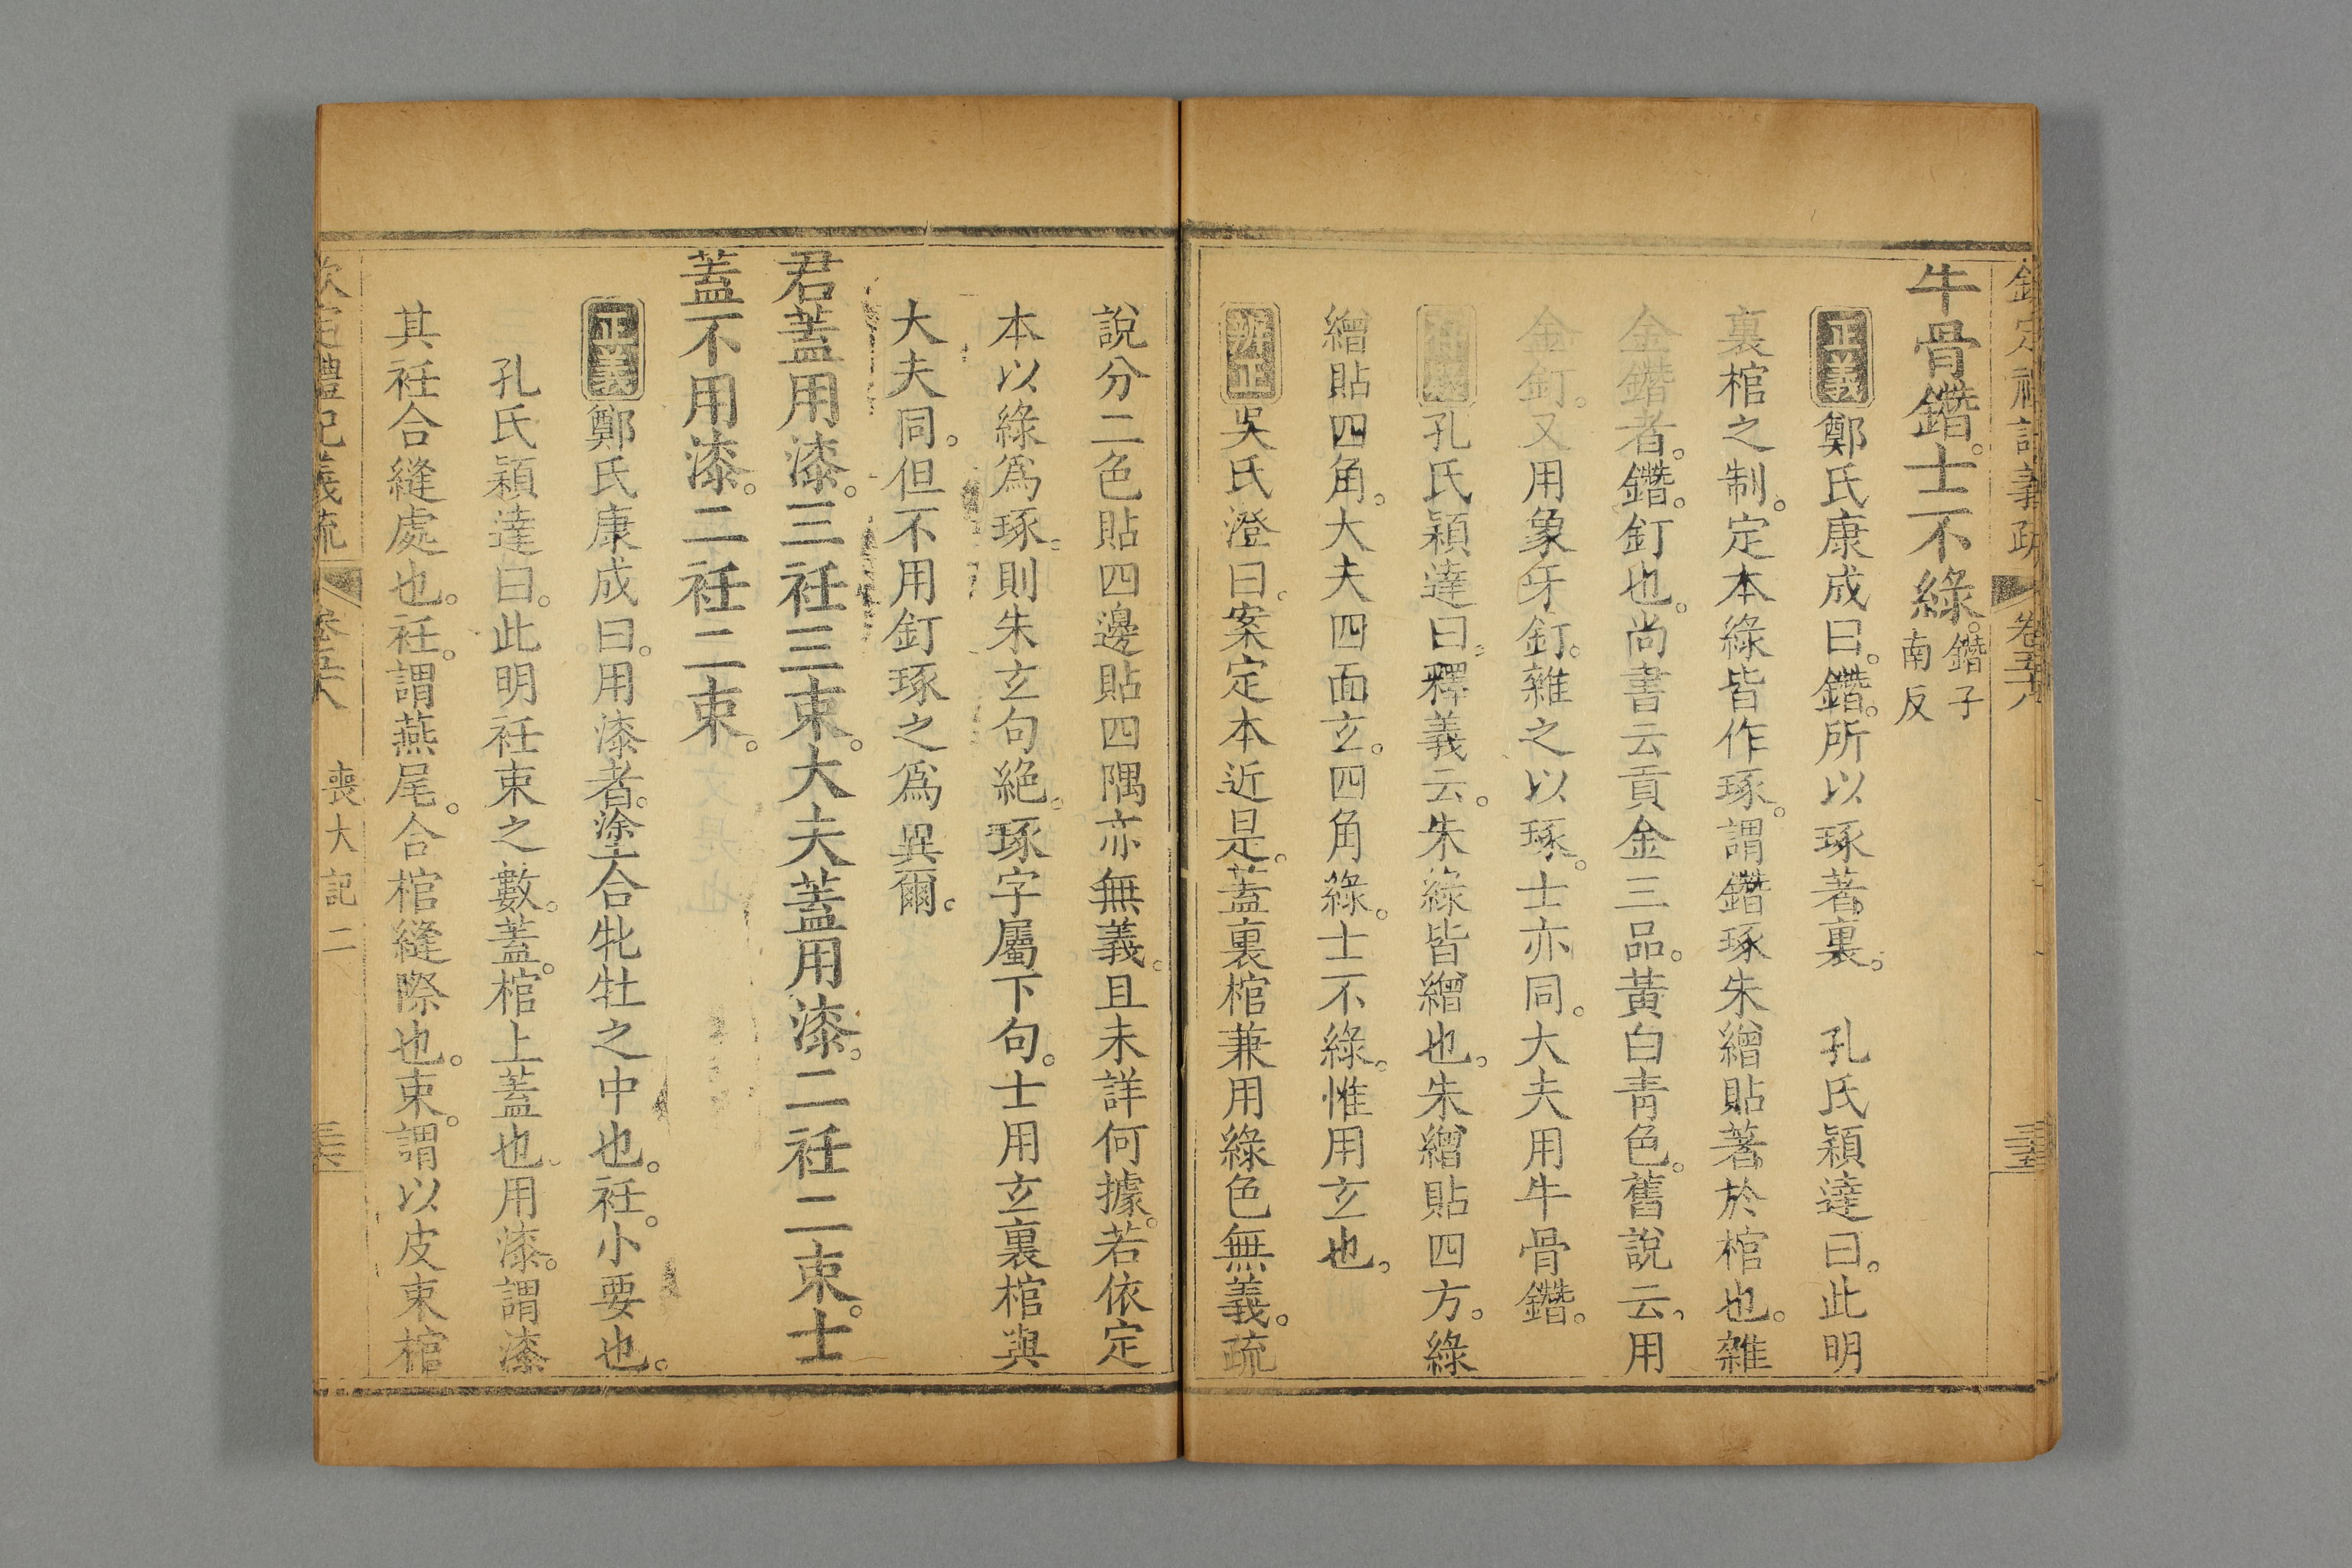 欽定禮記義疏 卷五十八
牛骨鐕。士不綠。鐕子南反
正義 鄭氏康成曰。鐕。所以琢著裏。 孔氏穎達曰。此明
裏棺之制。定本綠皆作琢。謂鐕琢朱繒貼著於棺也。雜
金鐕者。鐕。釘也。尚書云貢金三品。黃白青色。舊說云。用
金釘。又用象牙釘。雜之以琢。士亦同。大夫用牛骨鐕。
孔氏穎達曰。釋義云。朱綠皆繒也。朱繒貼四方。綠
繒貼四角。大夫四面玄。四角綠。士不綠。惟用玄也。
辨正 吳氏澄曰。案定本近是。蓋裏棺兼用綠色無義。疏
說分二色貼四邊貼四隅亦無義。且未詳何據。若依定
本以綠為琢。則朱玄句絕。琢字屬下句。士用玄裏棺與
大夫同。但不用釘琢之為異爾。
君蓋用漆。三衽三束。大夫蓋用漆。二衽二束。士
蓋不用漆。二衽二束。
正義 鄭氏康成曰。用漆者。塗合牝牡之中也。衽。小要也。
孔氏穎達曰。此明衽束之數。蓋。棺上蓋也。用漆。謂漆
其衽合縫處也。衽。謂燕尾。合棺縫際也。束。謂以皮束棺
欽定禮記義疏 卷五十八 喪大記二